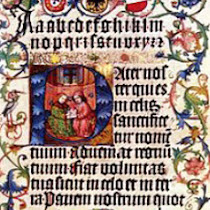 Aaabcdefghiklm
Pater nos
ter qui es
in celis
sanctifice
tur nome
tuum Adueniat
tuum Fiat voluntas
sicut in celo et in ter
ra Panem nostrum quot